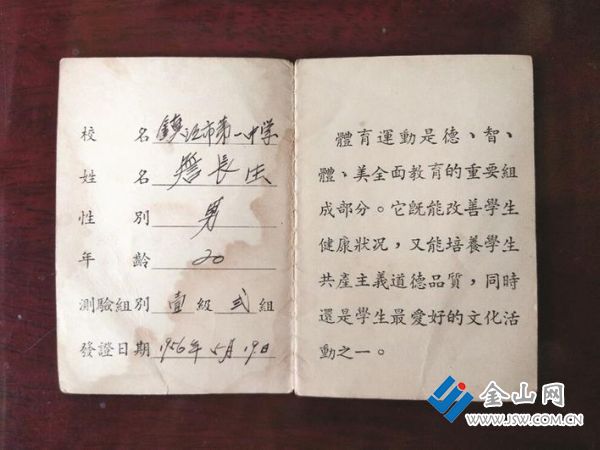 校名 鎮江市第一中学
姓名 詹長法
性別 男
年齡 20
測驗組別 壹級 弍組
發證日期 1956年5月19日
體育運動是德、智、
體、美全面教育的重要組
成部分。它既能改善學生
健康狀況，又能培養學生
共產主義道德品質，同時
還是學生最愛好的文化活
動之一。
金山网
WWW.JSW.COM.CN